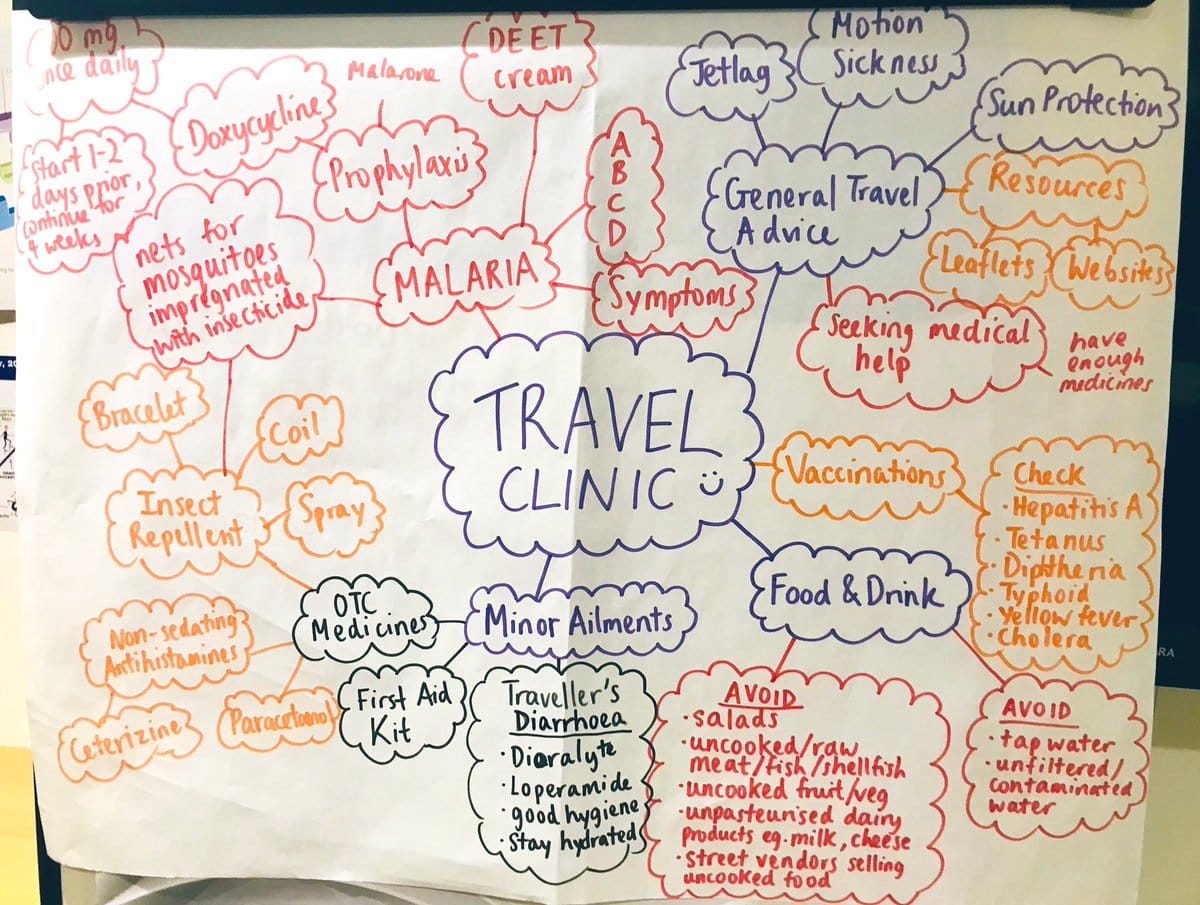 nce daily
Start 1-2
days prior,
continue for
4 weeks
Doxycycline
Malarone
Prophylaxis
DEET
cream
A
B
C
D
nets for
mosquitoes
impregnated
with insecticide
MALARIA
Symptoms
Jetlag
Motion
Sickness
Sun Protection
General Travel
Advice
Resources
Leaflets
Websites
Seeking medical
help
have
enough
medicines
TRAVEL
CLINIC
Bracelet
Coil
Insect
Repellent
Spray
Vaccinations
Check
·Hepatitis A
·Tetanus
·Diptheria
·Typhoid
·Yellow fever
·Cholera
OTC
Medicines
Minor Ailments
Food & Drink
Non-sedating
Antihistamines
Ceterizine
Paracetamol
First Aid
Kit
Traveller's
Diarrhoea
·Dioralyte
·Loperamide
·good hygiene
·Stay hydrated
AVOID
·salads
·uncooked/raw
meat/fish/shellfish
·uncooked fruit/veg
·unpasteurised dairy
products eg. milk, cheese
·street vendors selling
uncooked food
AVOID
·tap water
·unfiltered/
contaminated
water
RA